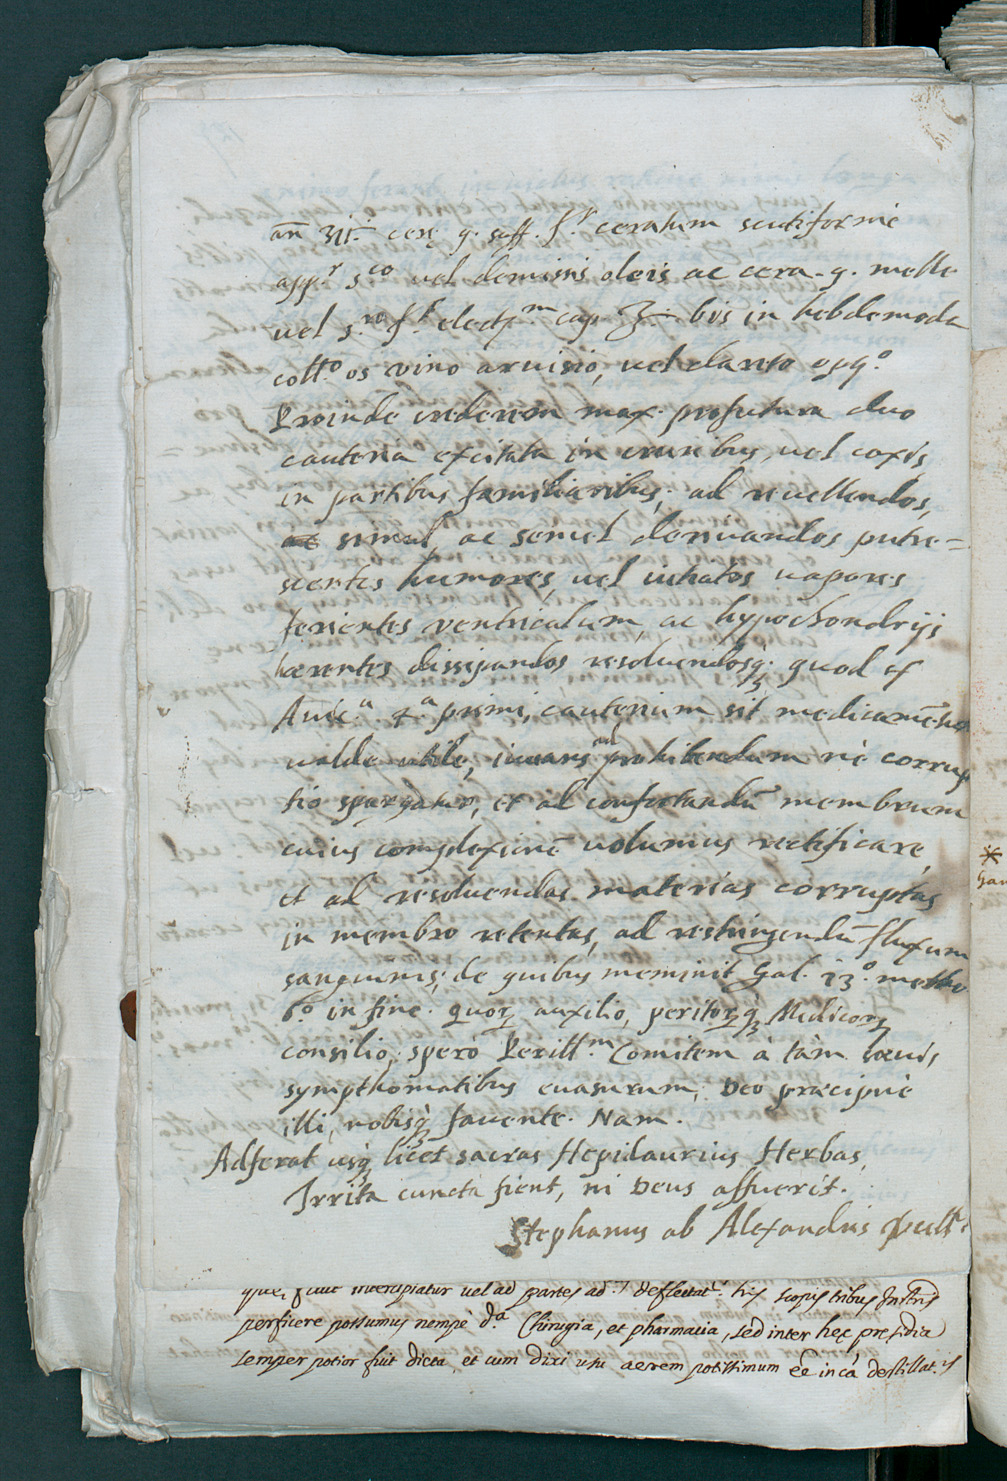 añ ʒiſ. ceræ q. suff. f.r ceratum scutiforme
app.r s.co vel demissis oleis ac cera. q. melle
uel s.ro f.t elect.m cap ʒ bis in hebdomoda
coll.o os vino aruisio, uel clareto opq.o
Proinde crederem max. profutura duo
cauteria excitata in cruribus, uel coxis
in partibus familiaribus; ad reuellendos,
simul, ac semel deriuandos putre=
scentes humores, uel inhatos uapores
ferientes ventriculum, ac hypochondrijs
hærentes dissipandos resoluendosq; quod ex
Auic.a 4.a primi, cauterium sit medicamẽtum
ualde utile, iuuans ad prohibendum nè corrup
tio spargatur, et ad confortandũ membrum
cuius complexionẽ uolumus rectificare,
et ad resoluendas materias corruptas
in membro retentas, ad restringendũ fluxum
sanguinis; de quibus meminit Gal. 13.o metho
6.o in fine. quorꝫ auxilio, peritorꝫq; Medicorꝫ
consilio, spero Perill.m Comitem à tàm sæuis
sympthomatibus euasurum; Deo præcipuè
illi, nobisq; fauente. Nam.
Adferat usq; licet sacras Hepidaurius Herbas,
Irrita cuncta fient, ni Deus affuerit.
Stephanus ab Alexandris
intercipiatur uel ad partes ad deflectat.r his scopis tribus Instris
perficere possumus nempè d.a Chirugia, et pharmacia, sed inter hęc pręsidia
semper potior fuit dicta, et cum dixi usu aerem potissimum eẽ in cá destillat.is